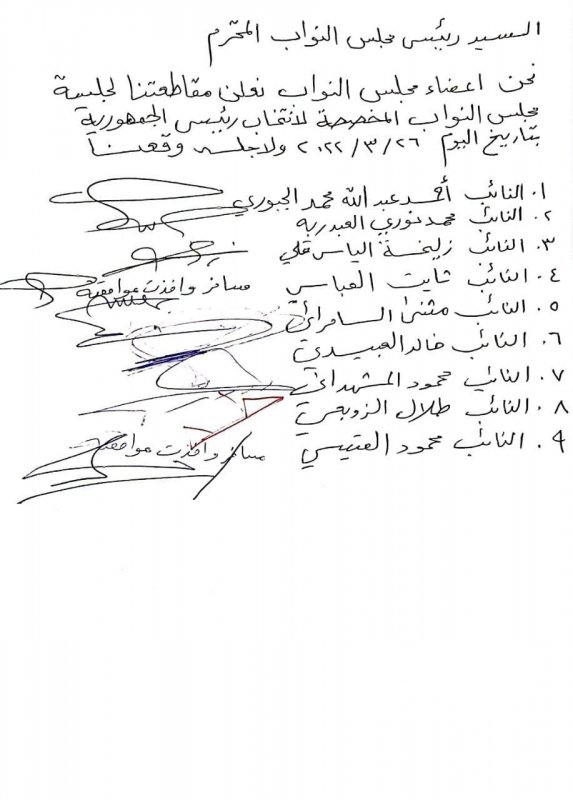 السيد رئيس مجلس النواب المحترم
نحن اعضاء مجلس النواب نعلن مقاطعتنا لجلسة
مجلس النواب المخصصة لانتخاب رئيس الجمهورية
بتاريخ اليوم ٢٠٢٢/٣/٢٦ ولاجله وقعنا
١. النائب أحمد عبد الله محمد الجبوري
٢. النائب محمد نوري العبدربه
٣. النائب زليخة الياس قلي
٤. النائب ثابت العباسي مسافر واخذت موافقته
٥. النائب مثنى السامرائي
٦. النائب خالد العبيدي
٧. النائب محمود المشهداني
٨. النائب طلال الزوبعي
٩. النائب محمود القيسي مسافر واخذت موافقته